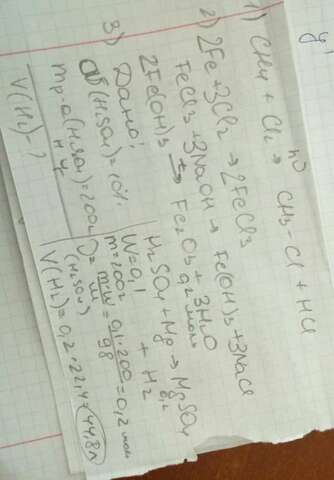 1) CH4 + Cl2 → hν CH3-Cl + HCl
2) 2Fe + 3Cl2 → 2FeCl3
FeCl3 + 3NaOH → Fe(OH)3 + 3NaCl
2Fe(OH)3 t→ Fe2O3 + 3H2O
3) Дано:
ω(H2SO4) = 10%
mр-а(H2SO4) = 200г
V(H2) - ?
0,2 моль
H2SO4 + Mg → MgSO4 + H2
W = 0,1
m = 200г
(H2SO4) = m·w/M = 0,1·200/98 = 0,2 моль
V(H2) = 0,2·22,4 = 44,8л